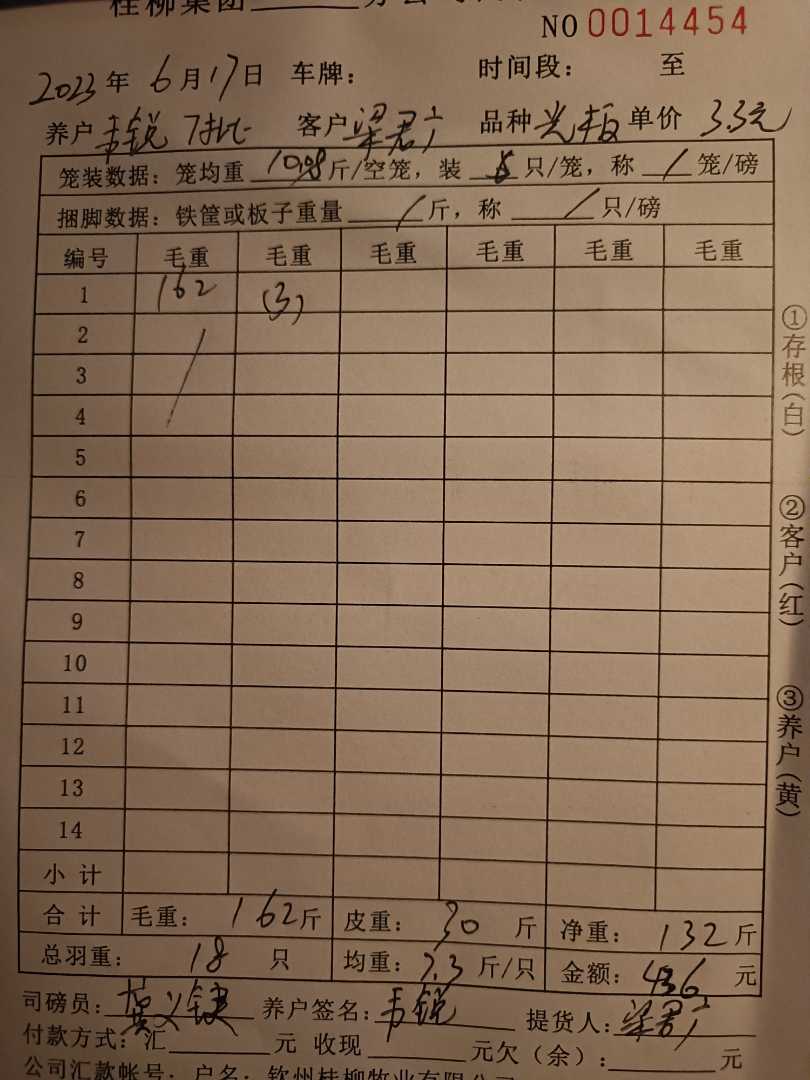 桂柳集团
NO 0014454
2023年 6月17日 车牌： 时间段： 至
养户 韦锐 7批 客户 梁君广 品种 光板 单价 3.3元
笼装数据：笼均重 斤/空笼，装 只/笼，称 1 笼/磅
捆脚数据：铁筐或板子重量 / 斤，称 / 只/磅
编号 毛重 毛重 毛重 毛重 毛重 毛重
1 162 (3)
2
3
4
5
6
7
8
9
10
11
12
13
14
小计
合计 毛重： 162斤 皮重： 30 斤 净重： 132斤
总羽重： 18 只 均重： 7.3 斤/只 金额： 436 元
司磅员： 养户签名：韦锐 提货人：梁君广
付款方式：汇 元 收现 元欠（余）： 元
公司汇款帐号：户名：钦州桂柳牧业有限公司
①存根（白） ②客户（红） ③养户（黄）